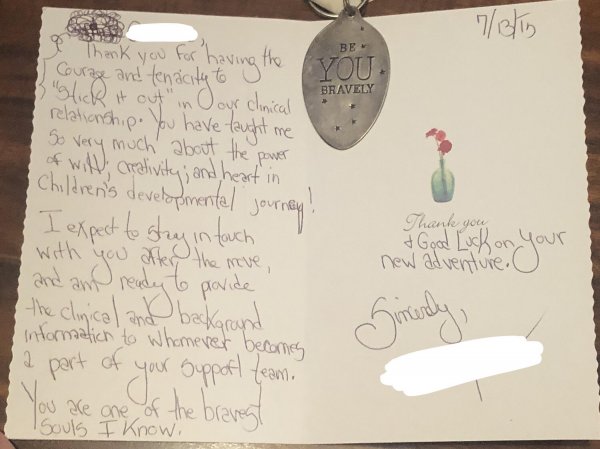 Thank you for having the
Courage and tenacity to
"Stick it out" in our clinical
relationship. You have taught me
So very much about the power
of will, creativity, and heart in
Children's developmental journey!
I expect to stay in touch
with you after the move,
and am ready to provide
the clinical and background
information to whomever becomes
a part of your support team.
You are one of the bravest
souls I know.
BE
YOU
BRAVELY
7/13/15
Thank you
& Good Luck on your
new adventure.
Sincerely,